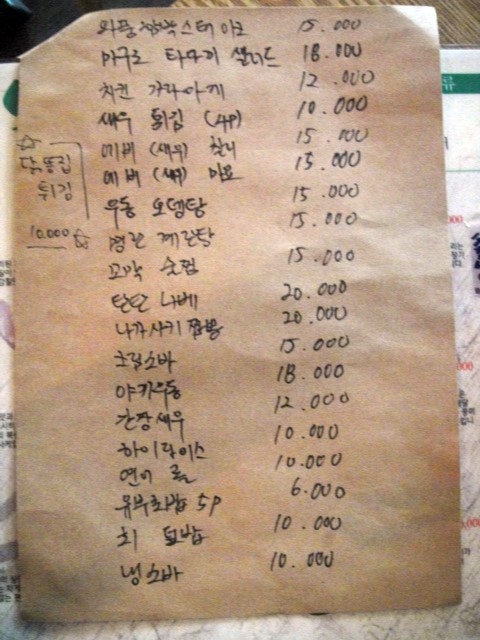 와풍 함박스테이크 15.000
마구로 타다끼 샐러드 18.000
치킨 가라아게 12.000
새우 튀김 (4P) 10.000
에비 (새우) 칠리 15.000
에비 (새우) 마요 15.000
우동 오뎅탕 15.000
명란 계란탕 15.000
꼬막 술찜 15.000
탄탄 나베 20.000
나가사키 짬뽕 20.000
15.000
야끼우동 18.000
간장새우 12.000
하이라이스 10.000
연어 롤 10.000
유부초밥 5P 6.000
회 덮밥 10.000
냉소바 10.000
닭똥집
튀김
10.000